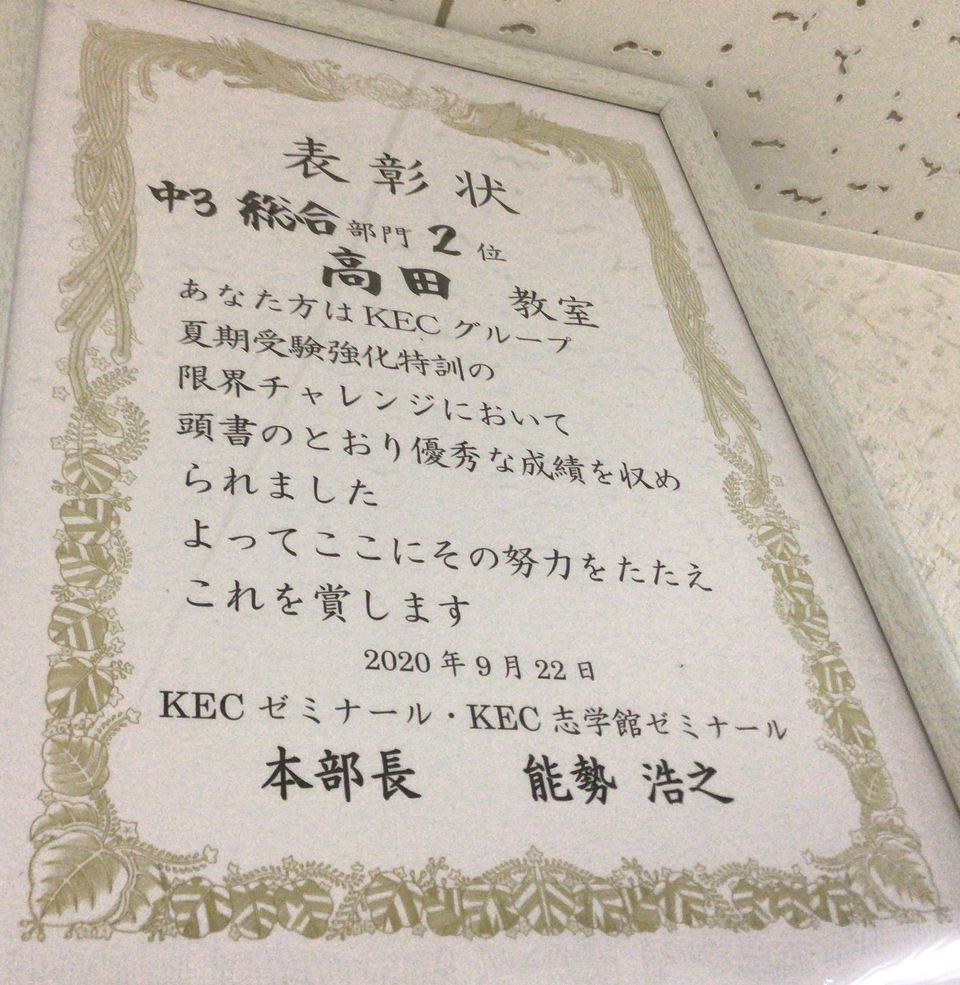 表彰状
中3 総合部門 2位
高田 教室
あなた方はKECグループ
夏期受験強化特訓の
限界チャレンジにおいて
頭書のとおり優秀な成績を収め
られました
よってここにその努力をたたえ
これを賞します
2020年9月22日
KECゼミナール・KEC志学館ゼミナール
本部長 能勢 浩之